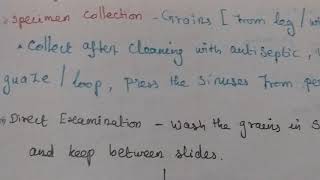 specimen collection - Grains [ From leg / wi
* Collect after cleaning with antiseptic,
guaze / loop, press the sinuses from pe
Direct Examination - Wash the grains in S
and keep between slides.